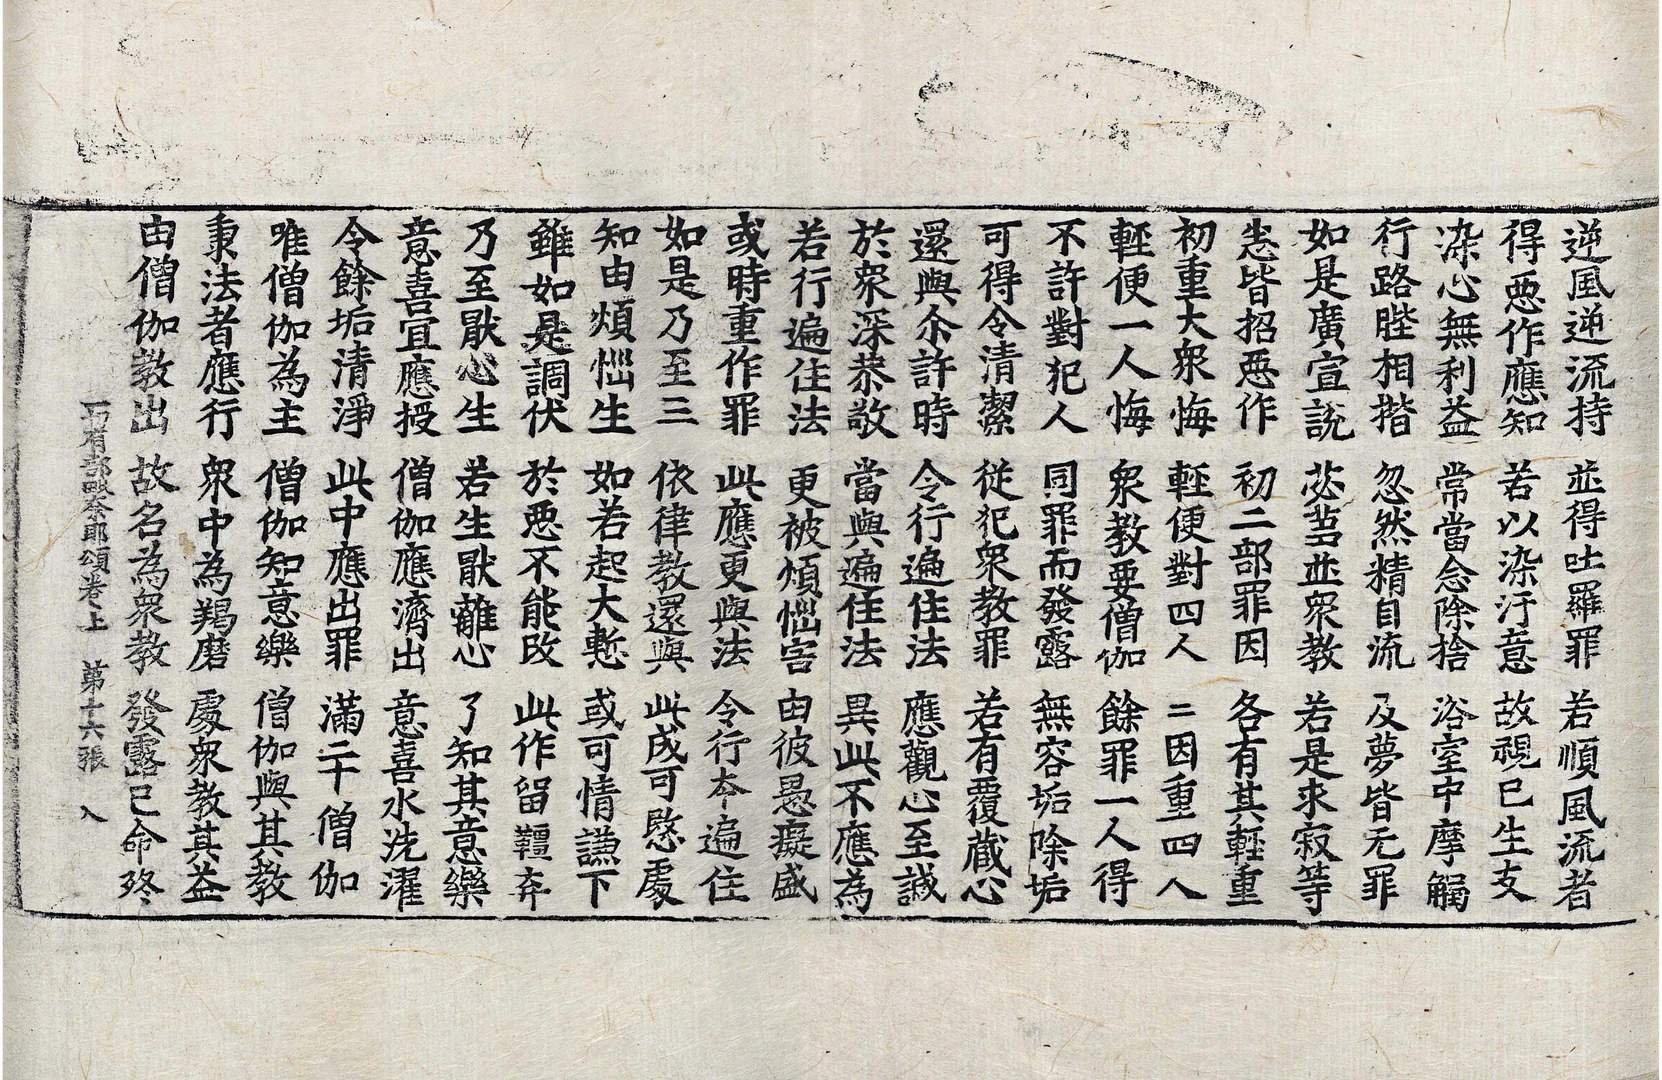 逆風逆流持 並得吐羅罪 若順風流者
得惡作應知 若以染汙意 故視已生支
染心無利益 常當念除捨 浴室中摩觸
行路䏶相揩 忽然精自流 及夢皆无罪
如是廣宣說 苾芻並衆教 若是求寂等
悉皆招惡作 初二部罪因 各有其輕重
初重大衆悔 輕便對四人 二因重四人
輕便一人悔 衆教要僧伽 餘罪一人得
不許對犯人 同罪而發露 無容垢除垢
可得令清潔 從犯衆教罪 若有覆藏心
還與尒許時 令行遍住法 應觀心至誠
於衆深恭敬 當與遍住法 異此不應為
若行遍住法 更被煩惱害 由彼愚癡盛
或時重作罪 此應更與法 令行本遍住
如是乃至三 依律教還與 此成可愍處
知由煩惱生 如若起大慙 或可情謙下
雖如是調伏 於惡不能改 此作留韁弃
乃至猒心生 若生猒離心 了知其意樂
意喜宜應授 僧伽應濟出 意喜水洗濯
令餘垢清淨 此中應出罪 滿二十僧伽
唯僧伽為主 僧伽知意樂 僧伽與其教
秉法者應行 衆中為羯磨 處衆教其益
由僧伽教出 故名為衆教 發露已命終
一切有部毗奈耶頌卷上 第十六張 入